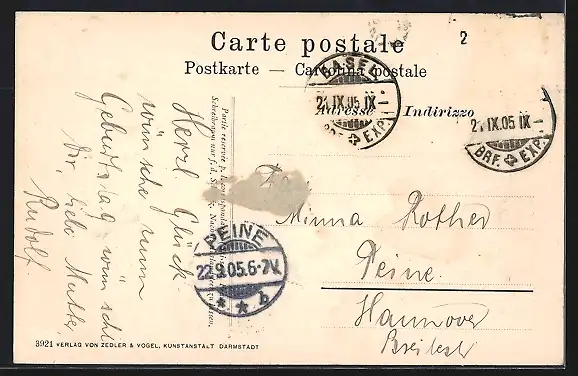 Carte postale
Postkarte — Cartolina postale
2
BASEL
21.IX.05 IX—
BRF. EXP.
21.IX.05 IX—
BRF. EXP.
Adresse — Indirizzo
Herzl Glück
wünsche zum
Geburtstag wünscht
Dir, liebe Mutter
Rudolf.
Minna Rother
Peine.
Hannover
PEINE
22.9.05.6-7V.
* * b
3921 VERLAG VON ZEDLER & VOGEL, KUNSTANSTALT DARMSTADT